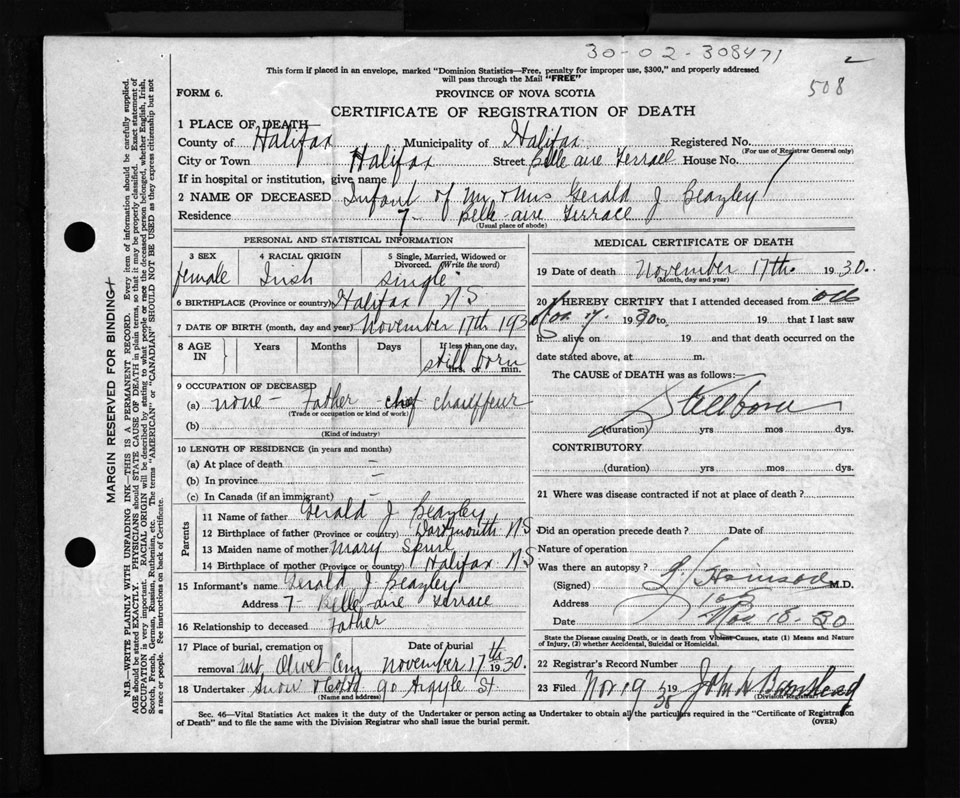 30-02-308471
2
508
This form if placed in an envelope, marked "Dominion Statistics—Free, penalty for improper use, $300," and properly addressed
will pass through the Mail "FREE"
FORM 6.
PROVINCE OF NOVA SCOTIA
CERTIFICATE OF REGISTRATION OF DEATH
1 PLACE OF DEATH
County of Halifax Municipality of Halifax Registered No.
(For use of Registrar General only)
City or Town Halifax Street Belle aire Terrace House No. 7
If in hospital or institution, give name
2 NAME OF DECEASED Infant of Mr & Mrs Gerald J Beazley
Residence 7- Belle-aire Terrace
(Usual place of abode)
PERSONAL AND STATISTICAL INFORMATION
3 SEX female
4 RACIAL ORIGIN Irish
5 Single, Married, Widowed or
Divorced. (Write the word)
single
6 BIRTHPLACE (Province or country) Halifax N S
7 DATE OF BIRTH (month, day and year) November 17th 1930
8 AGE IN Years Months Days If less than one day, hrs. or min.
still born
9 OCCUPATION OF DECEASED
(a) none - Father chauffeur
(Trade or occupation or kind of work)
(b)
(Kind of industry)
10 LENGTH OF RESIDENCE (in years and months)
(a) At place of death -
(b) In province -
(c) In Canada (if an immigrant) -
Parents
11 Name of father Gerald J Beazley
12 Birthplace of father (Province or country) Dartmouth N S
13 Maiden name of mother Mary
14 Birthplace of mother (Province or country) Halifax N S
15 Informant's name Gerald J Beazley
Address 7- Belle aire Terrace
16 Relationship to deceased Father
17 Place of burial, cremation or removal Mt Olivet Cem
Date of burial November 17th 1930.
18 Undertaker Snow & Co Ltd 90 Argyle St.
(Name and address)
MEDICAL CERTIFICATE OF DEATH
19 Date of death November 17th. 1930.
(Month, day and year)
20 I HEREBY CERTIFY that I attended deceased from
Nov 17. 1930 to 19 that I last saw
h alive on 19 and that death occurred on the
date stated above, at m.
The CAUSE of DEATH was as follows:—
Stillborn
(duration) yrs mos dys.
CONTRIBUTORY
(duration) yrs mos dys.
21 Where was disease contracted if not at place of death?
Did an operation precede death? Date of
Nature of operation
Was there an autopsy?
(Signed) M.D.
Address
Date Nov 18-30
State the Disease causing Death, or in death from Violent Causes, state (1) Means and Nature
of Injury, (2) whether Accidental, Suicidal or Homicidal.
22 Registrar's Record Number
23 Filed Nov 19 19 30 John H Barnstead
(Division Registrar)
Sec. 46—Vital Statistics Act makes it the duty of the Undertaker or person acting as Undertaker to obtain all the particulars required in the "Certificate of Registration
of Death" and to file the same with the Division Registrar who shall issue the burial permit.
(OVER)
MARGIN RESERVED FOR BINDING
N.B.—WRITE PLAINLY WITH UNFADING INK—THIS IS A PERMANENT RECORD. Every item of information should be carefully supplied.
AGE should be stated EXACTLY. PHYSICIANS should STATE CAUSE OF DEATH in plain terms, so that it may be properly classified. Exact statement of
OCCUPATION is very important. RACIAL ORIGIN will be described by stating to what people or race the deceased person belonged, whether English, Irish,
Scotch, French, German, Russian, Ruthenian, etc. The terms "AMERICAN" or "CANADIAN" SHOULD NOT BE USED as they express citizenship but not
a race or people. See instructions on back of Certificate.